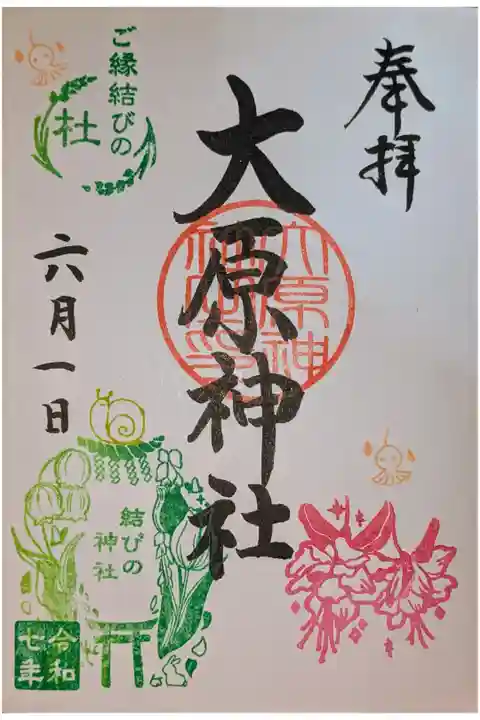 奉拝
大原神社
ご縁結びの
杜
六月一日
結びの
神社
令和
七年